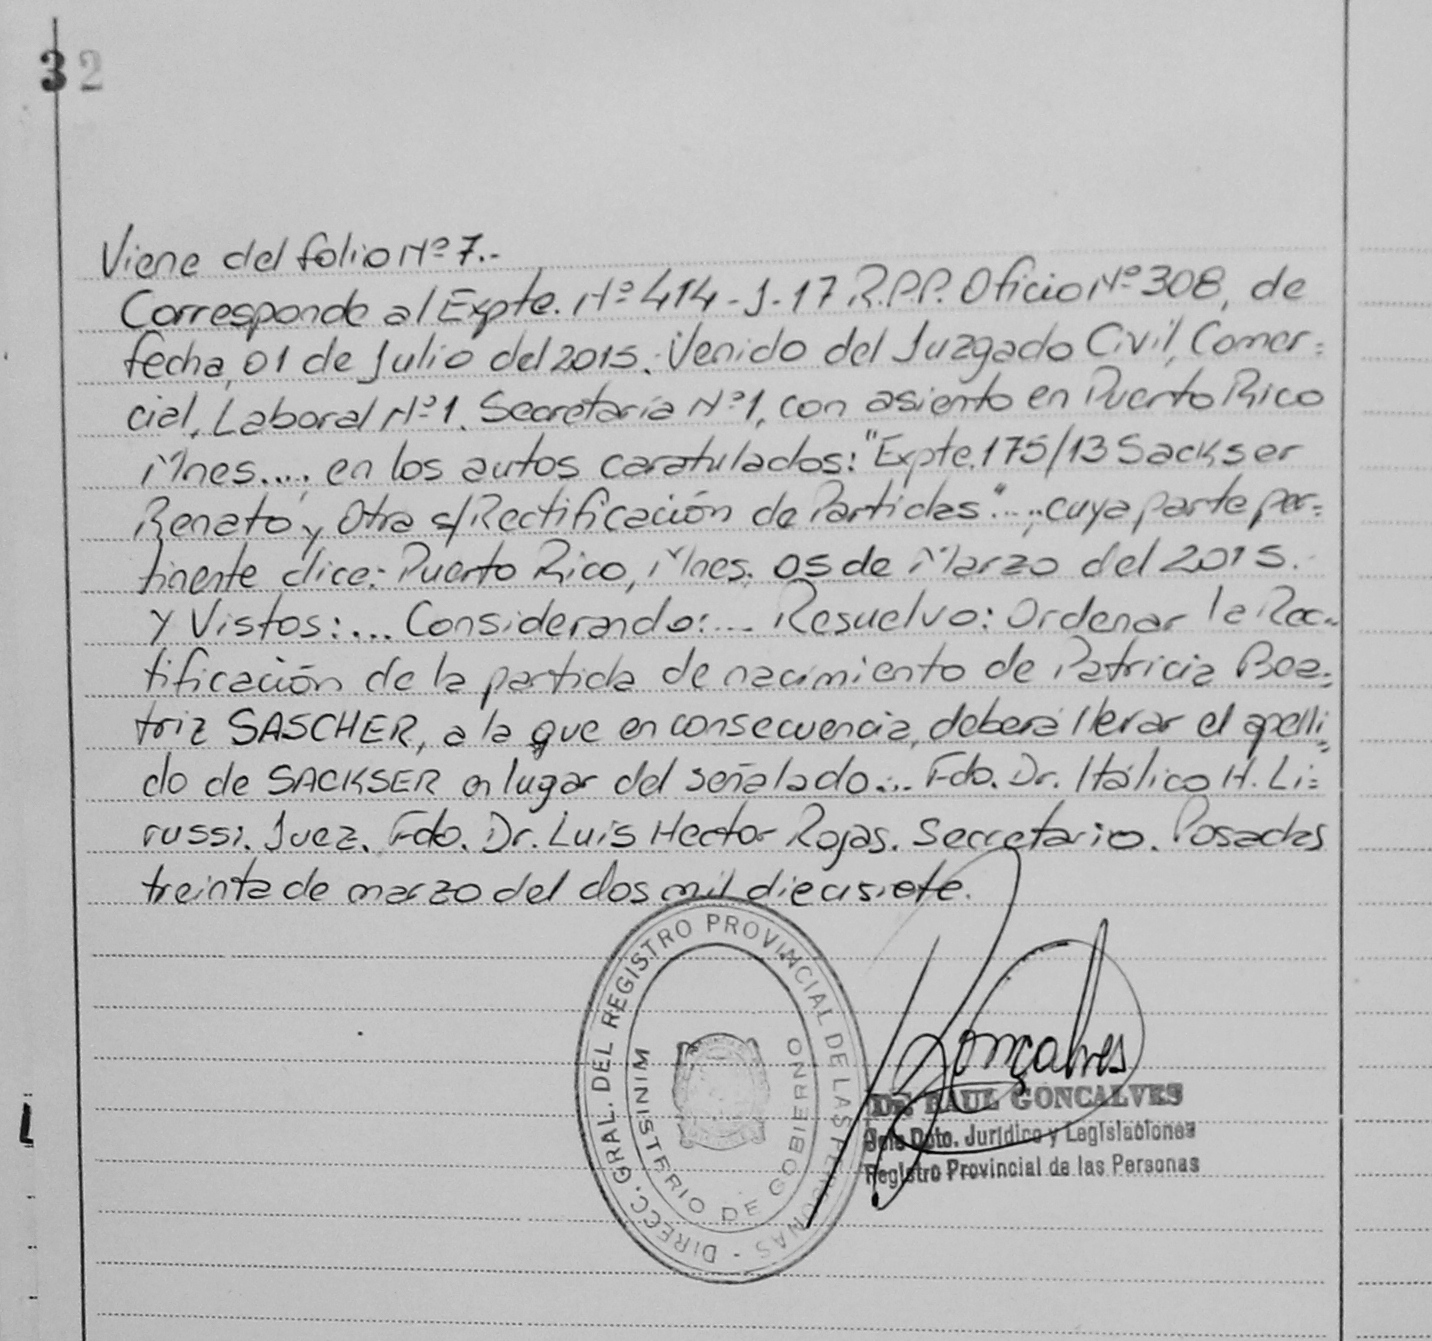 32
Viene del folio Nº 7.-
Corresponde al Expte. Nº 414-J-17 R.P.P. Oficio Nº 308, de
fecha, 01 de Julio del 2015. Venido del Juzgado Civil, Comer=
cial, Laboral Nº 1. Secretaría Nº 1, con asiento en Puerto Rico
Mnes...., en los autos caratulados: "Expte. 175/13 Sackser
Renato y Otra s/Rectificación de Partidas"...., cuya parte per=
tinente dice: Puerto Rico, Mnes. 05 de Marzo del 2015.
Y Vistos:... Considerando:... Resuelvo: Ordenar la Rec-
tificación de la partida de nacimiento de Patricia Bea=
triz SASCHER, a la que en consecuencia, deberá llevar el apelli=
do de SACKSER en lugar del señalado.... Fdo. Dr. Itálico H. Li=
russi. Juez. Fdo. Dr. Luis Hector Rojas. Secretario. Posadas
treinta de marzo del dos mil diecisiete.
DIRECC. GRAL. DEL REGISTRO PROVINCIAL DE LAS PERSONAS -
MINISTERIO DE GOBIERNO
Gonçalves
Dr. RAUL GONCALVES
Jefe Dpto. Jurídico y Legislaciones
Registro Provincial de las Personas